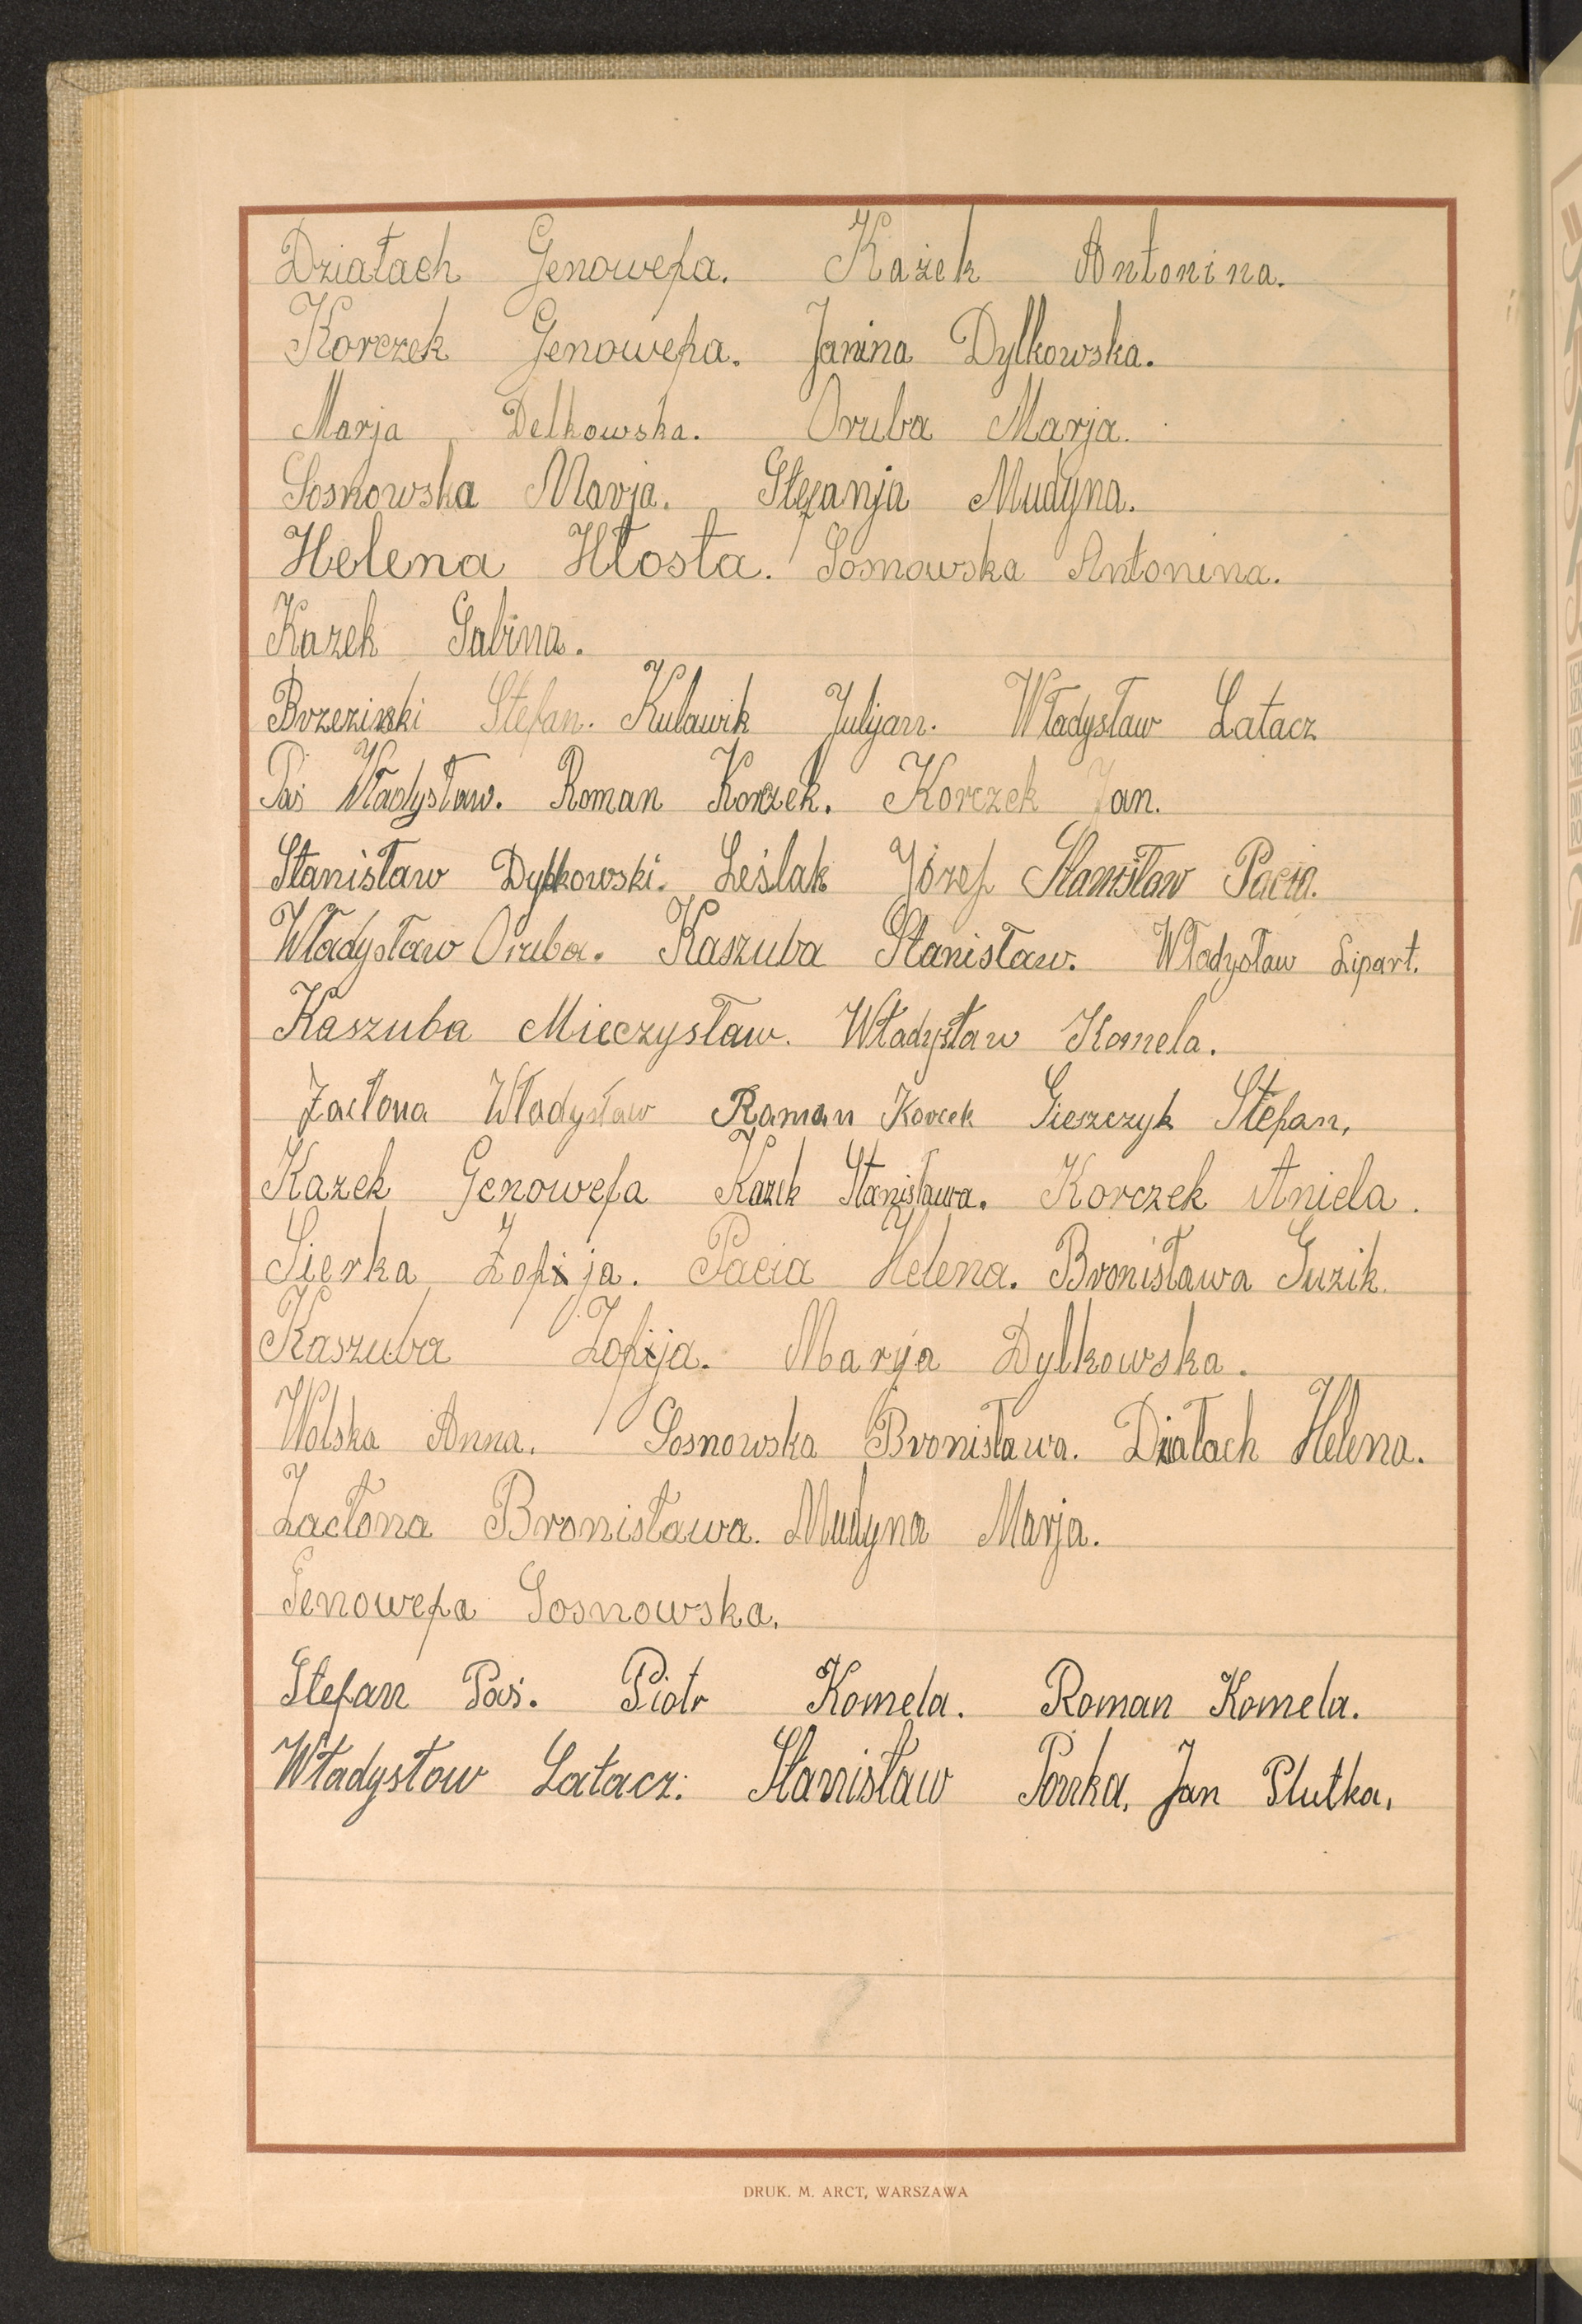 Działach Genowefa. Każek Antonina.
Korczek Genowefa. Janina Dylkowska.
Marja Delkowska. Oruba Marja.
Sosnowska Marja. Stefanja Mudyna.
Helena Hłosta. Sosnowska Antonina.
Kazek Sabina.
Brzezinski Stefan. Kulawik Julijan. Władysław Łatacz
Paś Władysław. Roman Korczek. Korczek Jan.
Stanisław Dylkowski. Leślak Józef Stanisław Pacia.
Władysław Oruba. Kaszuba Stanisław. Władysław Lipart.
Kaszuba Mieczysław. Władysław Komela.
Zacłona Władysław Raman Korcek Gieszczyk Stefan,
Kazek Genowefa Kazek Stanisława. Korczek Aniela.
Sierka Zofija. Pacia Helena. Bronisława Guzik.
Kaszuba Zofija. Maryja Dylkowska.
Wolska Anna. Sosnowska Bronisława. Działach Helena.
Zacłona Bronisława. Mudyna Marja.
Genowefa Sosnowska.
Stefan Paś. Piotr Komela. Roman Komela.
Władysław Łatacz. Stanisław Jan Plutka.
DRUK. M. ARCT, WARSZAWA